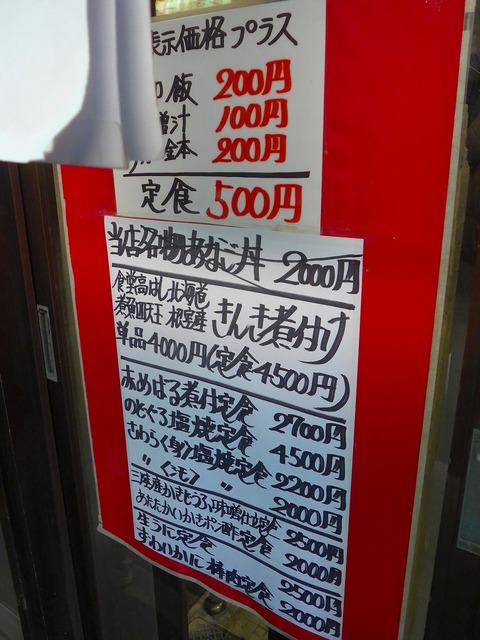 表示価格プラス
御飯 200円
味噌汁 100円
金本 200円
定食 500円
当店名物あなご丼 2000円
食堂高はし 北海道
煮魚四天王 根室産 きんき煮付け
単品4000円(定食4500円)
赤めばる煮付定食 2700円
のどぐろ塩焼定食 4500円
さわらく身)塩焼定食 2200円
〃 くモ) 〃 2000円
三陸産かきとうふ味噌仕立定食 2500円
あたたかいかきポン酢定食 2000円
生うに定食 2500円
ずわいかに棒肉定食 2000円